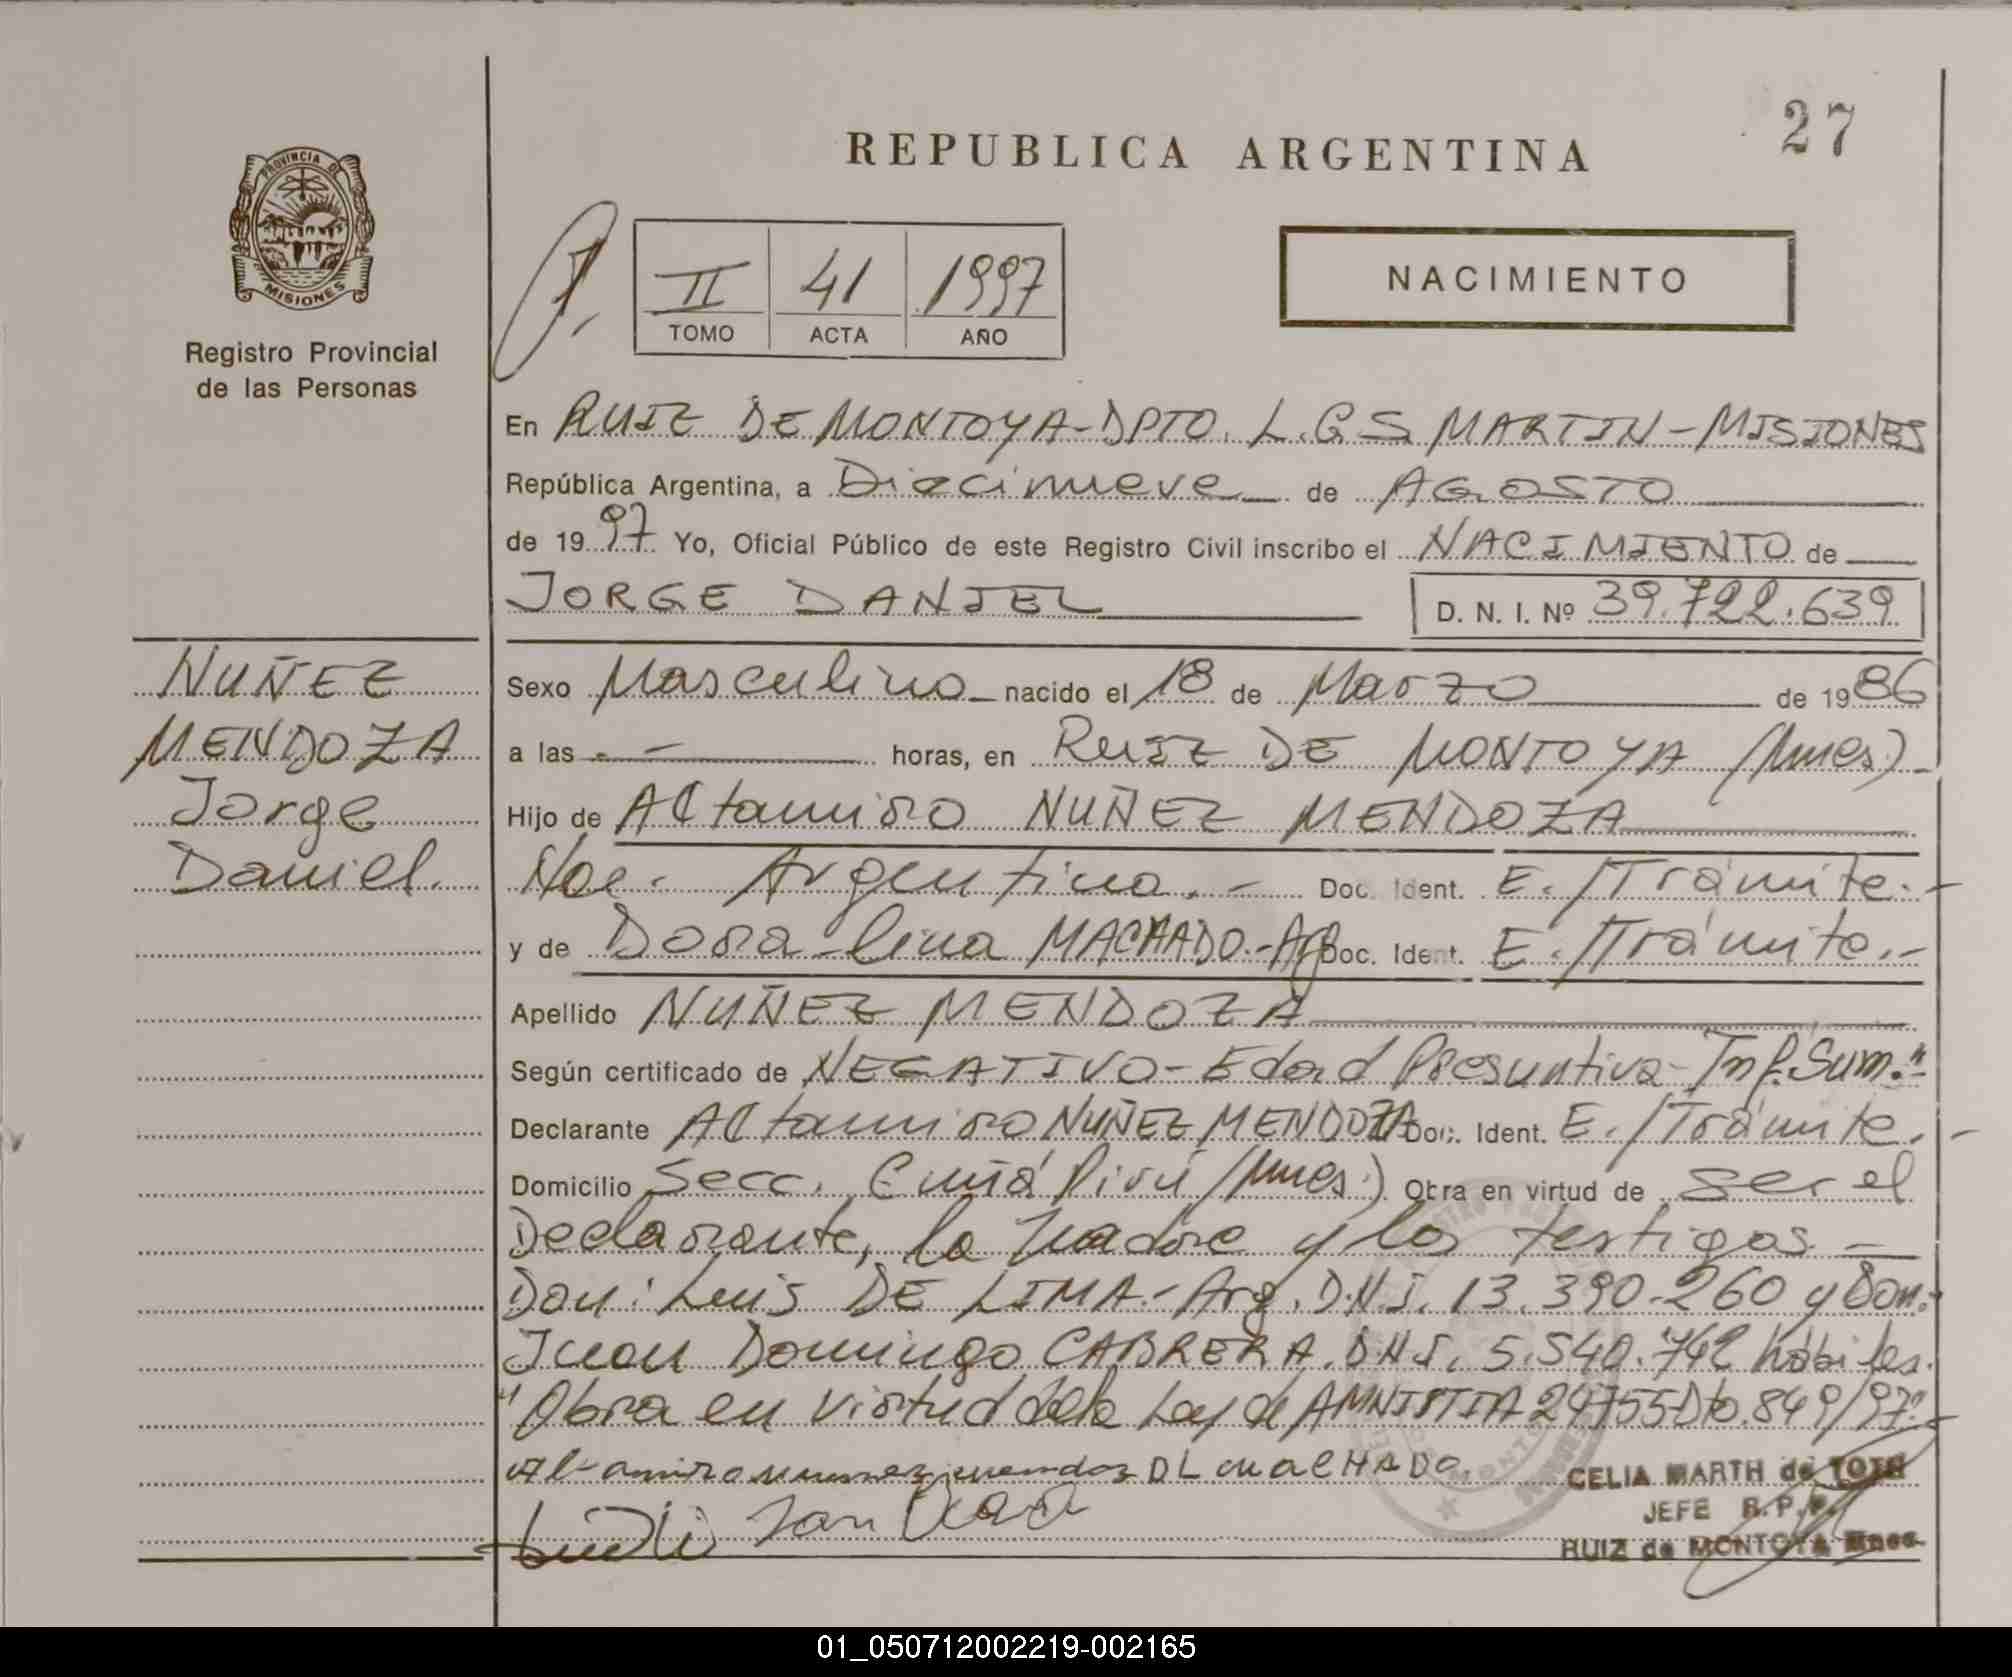 27
REPUBLICA ARGENTINA
PROVINCIA DE
MISIONES
Registro Provincial
de las Personas
II 41 1997
TOMO ACTA AÑO
NACIMIENTO
En RUIZ DE MONTOYA-DPTO. L.G.S. MARTIN-MISIONES
República Argentina, a Diecinueve de AGOSTO
de 1997 Yo, Oficial Público de este Registro Civil inscribo el NACIMIENTO de
JORGE DANIEL D. N. I. Nº 39.722.639
NUÑEZ
MENDOZA
Jorge
Daniel.
Sexo Masculino nacido el 18 de Marzo de 1986
a las - horas, en RUIZ DE MONTOYA (Mnes).-
Hijo de Altamiro NUÑEZ MENDOZA
Nac. Argentina.- Doc. Ident. E./Trámite.-
y de Dora-lina MACHADO.-Arg Doc. Ident. E./Trámite.-
Apellido NUÑEZ MENDOZA
Según certificado de NEGATIVO-Edad Presuntiva-Inf.Sum."-
Declarante Altamiro NUÑEZ MENDOZA Doc. Ident. E./Trámite.-
Domicilio Secc. Cuñá Pirú (Mnes.) Obra en virtud de ser el
Declarante, la madre y los testigos -
Don: Luis DE LIMA.-Arg. D.N.I. 13.390.260 y Don:-
Juan Domingo CABRERA. D.N.I. 5.540.742 hábiles.
"Obra en virtud de la Ley de AMNISTIA 24755 Dto. 849/97"-
Altamiro nunnez mendoz DL maCHADO
CELIA MARTH de TOTH
JEFE R.P.P.
RUIZ de MONTOYA Mnes-
01_050712002219-002165